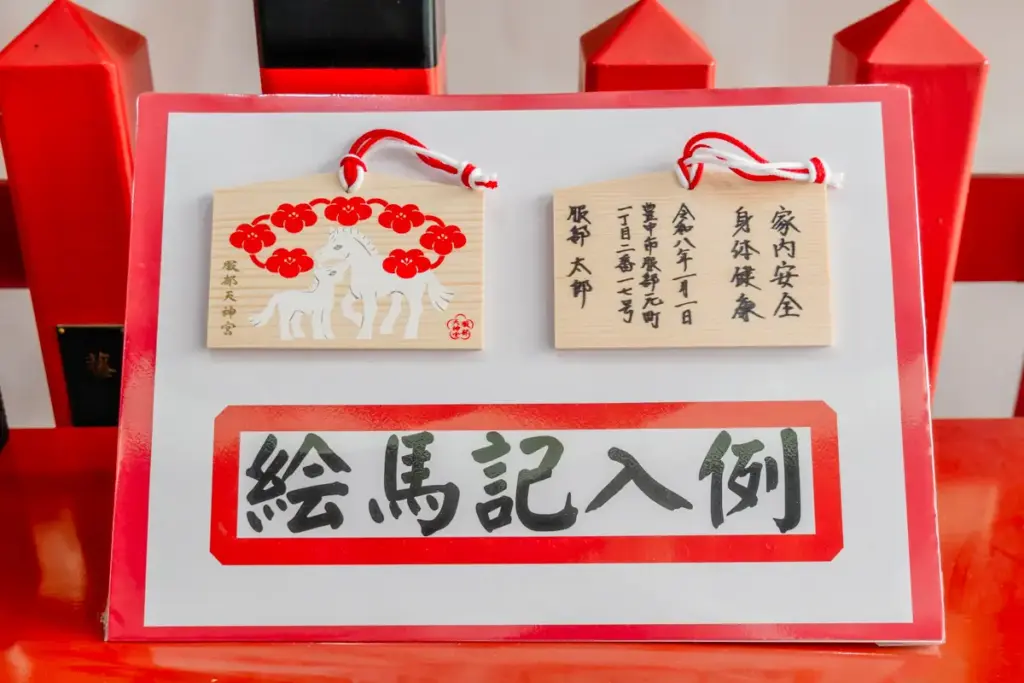 服部天神宮
服部
天神宮
家内安全
身体健康
令和八年一月一日
豊中市服部元町
一丁目二番一七号
服部 太郎
絵馬記入例